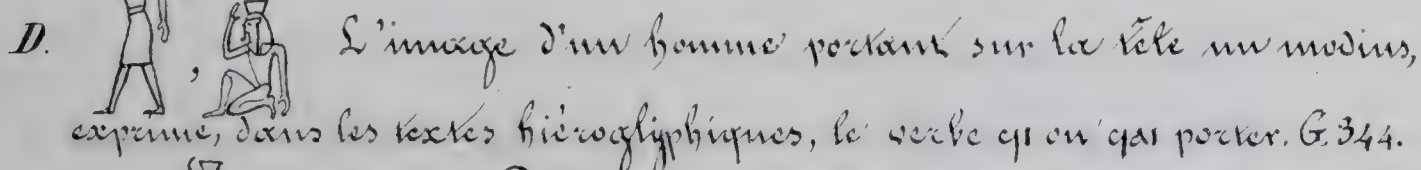 D. , L'image d'un homme portant sur la tête un modius,
exprime, dans les textes hiéroglyphiques, le verbe ϥⲓ ou ϥⲁⲓ porter. G. 344.